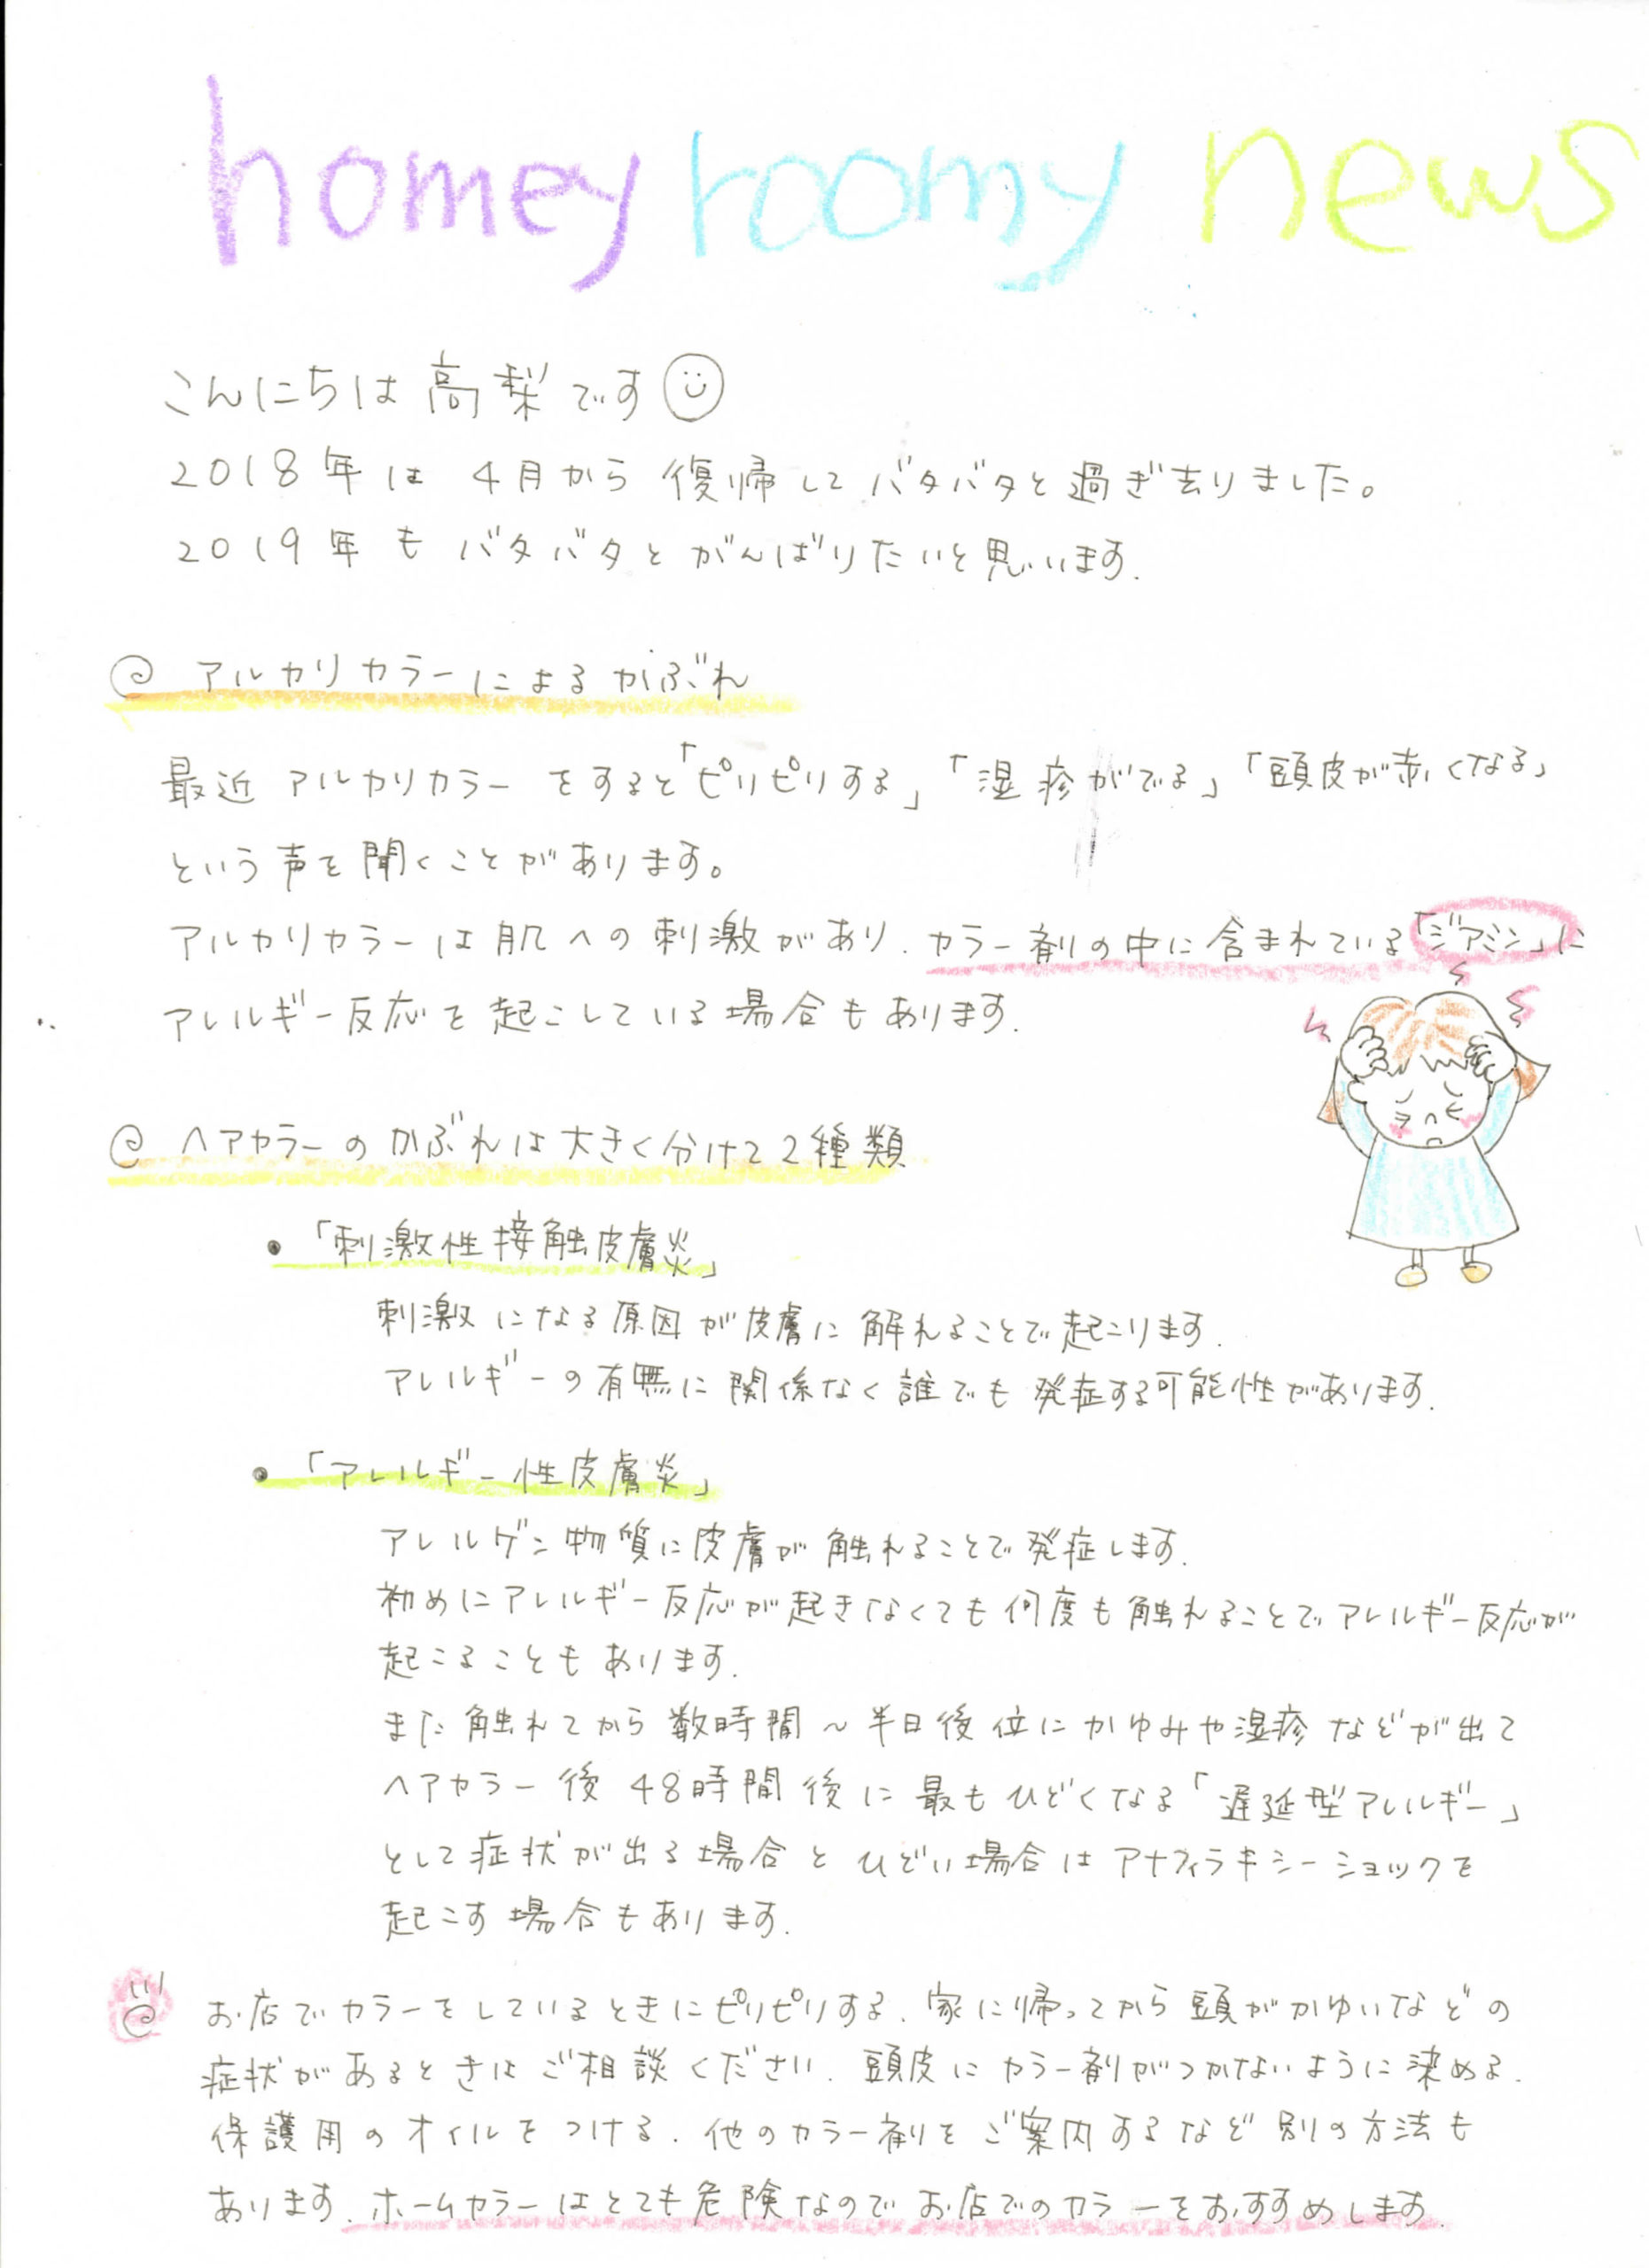 homey roomy news
こんにちは高梨です
2018年は4月から復帰してバタバタと過ぎ去りました。
2019年もバタバタとがんばりたいと思います.
アルカリカラーによるかぶれ
最近アルカリカラーをすると「ピリピリする」「湿疹がでる」「頭皮が赤くなる」
という声を聞くことがあります。
アルカリカラーは肌への刺激があり.カラー剤の中に含まれている「ジアミン」に
アレルギー反応を起こしている場合もあります.
ヘアカラーのかぶれは大きく分けて2種類
・「刺激性接触皮膚炎」
刺激になる原因が皮膚に解れることで起こります.
アレルギーの有無に関係なく誰でも発症する可能性があります.
・「アレルギー性皮膚炎」
アレルゲン物質に皮膚が触れることで発症します.
初めにアレルギー反応が起きなくても何度も触れることでアレルギー反応が
起こることもあります.
また触れてから数時間～半日後位にかゆみや湿疹などが出て
ヘアカラー後48時間後に最もひどくなる「遅延型アレルギー」
として症状が出る場合とひどい場合はアナフィラキシーショックを
起こす場合もあります.
お店でカラーをしているときにピリピリする.家に帰ってから頭がかゆいなどの
症状があるときはご相談ください.頭皮にカラー剤がつかないように染める.
保護用のオイルをつける.他のカラー剤をご案内するなど別の方法も
あります.ホームカラーはとても危険なのでお店でのカラーをおすすめします.